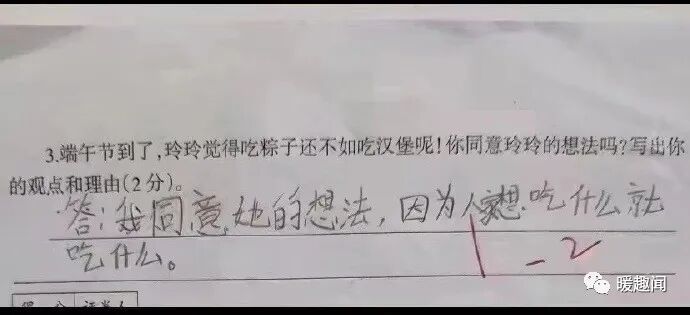 3.端午节到了,玲玲觉得吃粽子还不如吃汉堡呢!你同意玲玲的想法吗?写出你
的观点和理由(2分)。
答:我同意她的想法,因为人家想吃什么就
吃什么。
-2
得 分 评卷人
暖趣闻